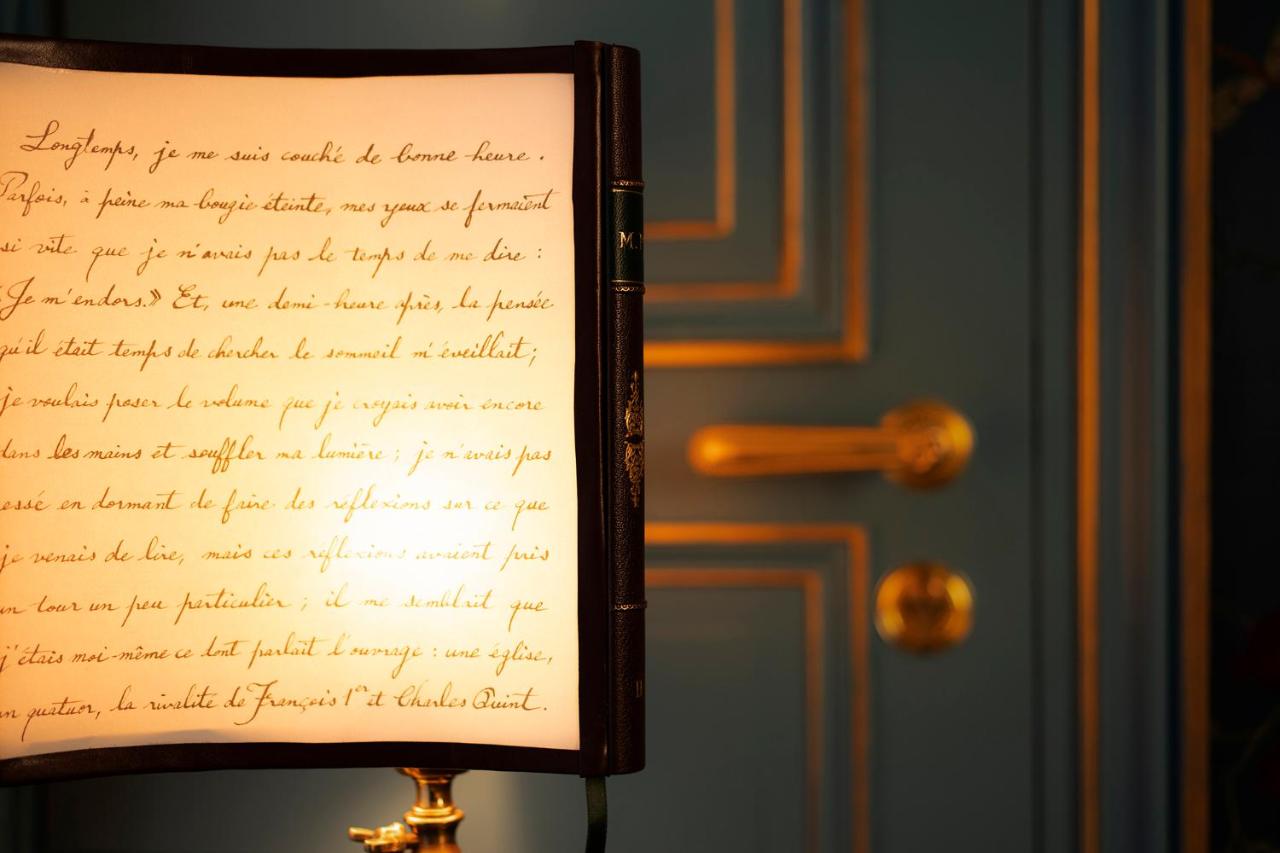 Longtemps, je me suis couché de bonne heure.
Parfois, à peine ma bougie éteinte, mes yeux se fermaient
si vite que je n'avais pas le temps de me dire :
Je m'endors.» Et, une demi-heure après, la pensée
qu'il était temps de chercher le sommeil m'éveillait ;
je voulais poser le volume que je croyais avoir encore
dans les mains et souffler ma lumière ; je n'avais pas
essé en dormant de faire des réflexions sur ce que
je venais de lire, mais ces réflexions avaient pris
un tour un peu particulier ; il me semblait que
j'étais moi-même ce dont parlait l'ouvrage : une église,
un quatuor, la rivalité de François 1er et Charles Quint.
M.